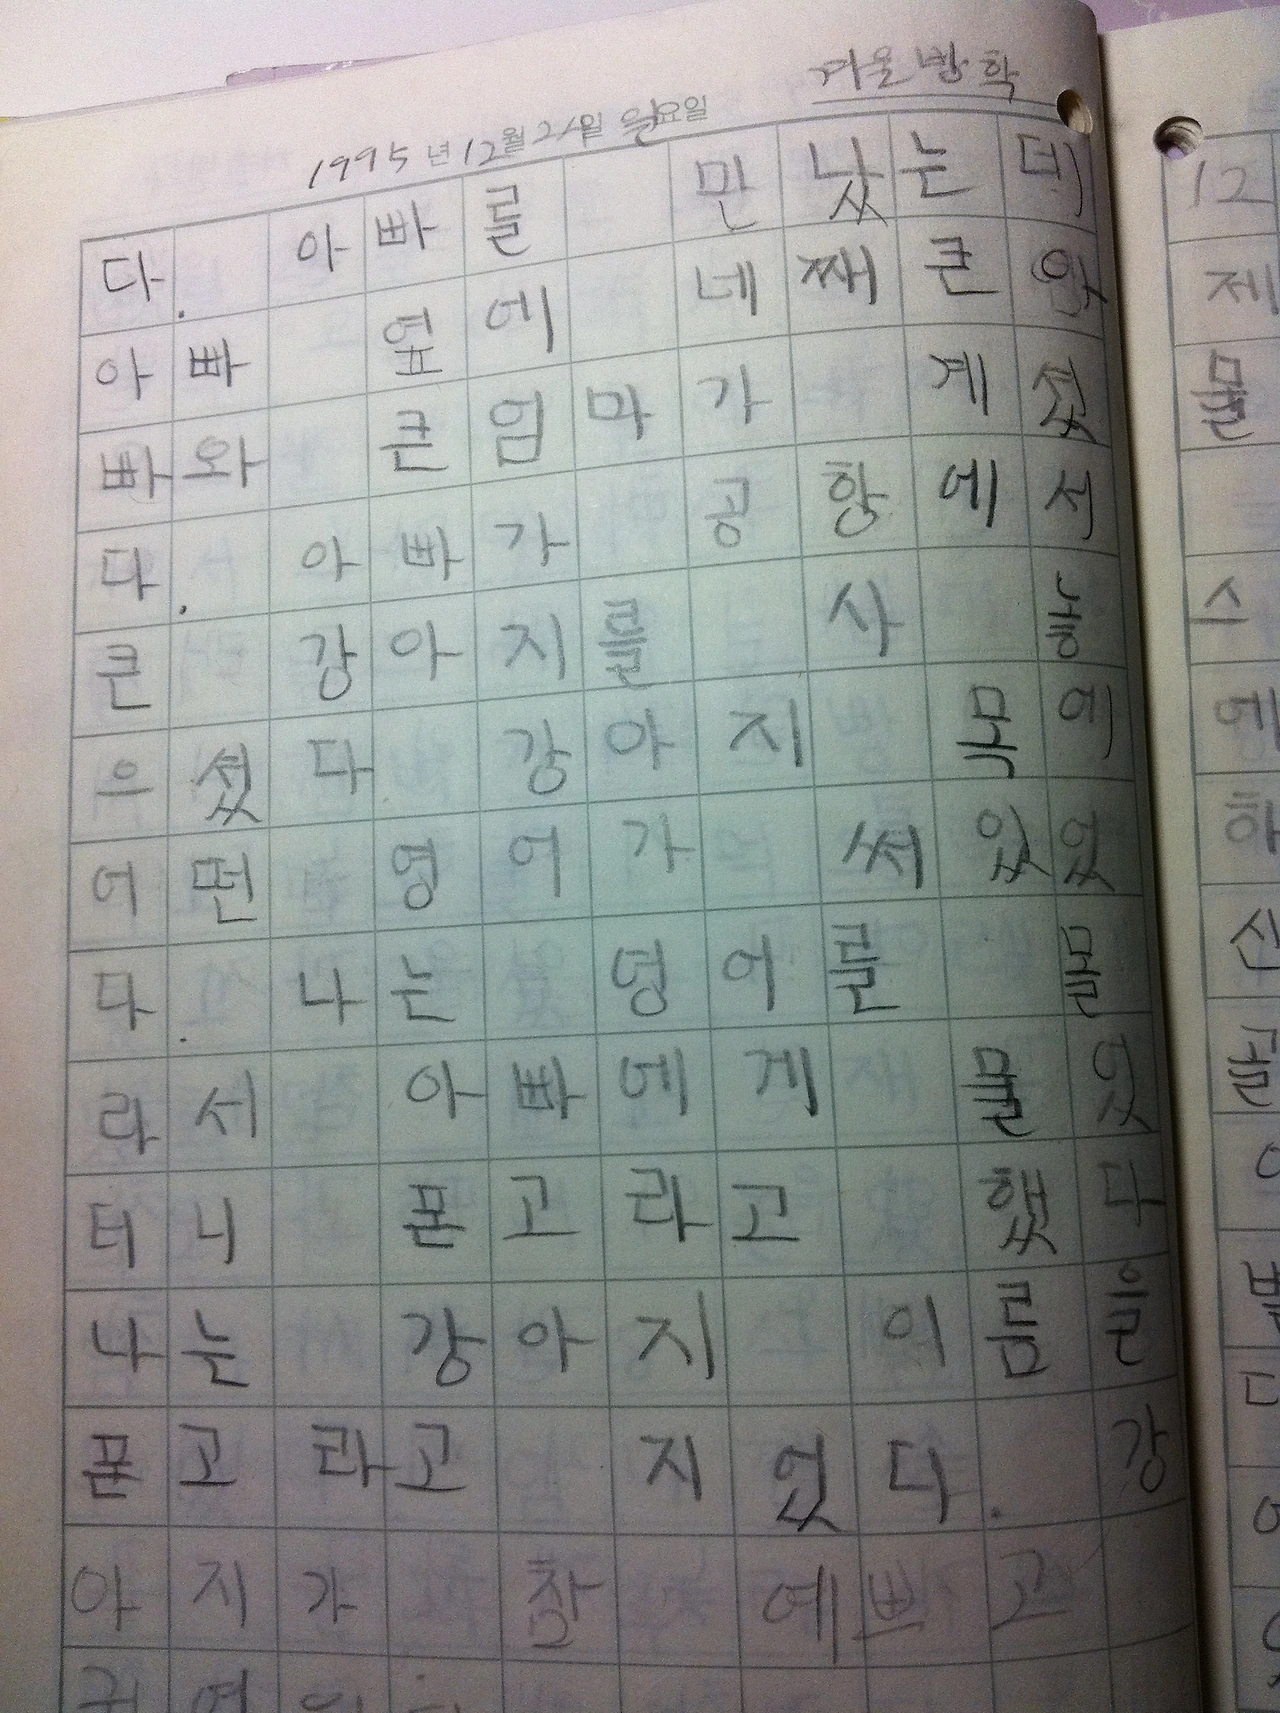 겨울방학
1995년 12월 21일 요일
다. 아빠를 만났는데
아빠 옆에 네째큰아
빠와 큰엄마가 계셨
다. 아빠가 공항에서
큰 강아지를 사 놓
으셨다 강아지 목에
어떤 영어가 써있었
다. 나는 영어를 몰
라서 아빠에게 물었
터니 폰고라고 했다
나는 강아지 이름을
폰고라고 지었다. 강
아지가 참 예쁘고
12
제
물
스
에
하
산